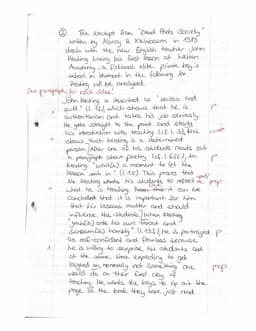 ② The excerpt from "Dead Poets Society"
written by Nancy H. Kleinbaum in 1989
deals with the new English teacher John
Keating having his first lesson at Welton
Academy, a fictional elite private boy's
school in Vermont. In the following Mr
Keating will be analysed.
One paragraph for each idea!
John Keating is described as "serious and
quiet" (l. ), which shows that he is
authoritarian and takes his job seriously.
He gets straight to the point and starts
his introduction into teaching (cf. l. ), this
shows that Keating is a determined
person. After one of his students reads out
a paragraph about poetry (cf. l. ff.), Mr
Keating "wait(s) a moment to let the
lesson sink in" (l. 15). This proves that
Mr Keating wants his students to reflect
what he is teaching them. It can be
concluded that it is important for him
that his lessons matter and should
influence the students. When Keating
"grab(s) onto his own throat and
scream(s) horribly" (l. ) he is portrayed
as self-confident and fearless because
he is willing to surprise his students and
at the same time expecting to get
laughed at, normally not something one
would do on their first day of
teaching. He wants the boys to rip out the
page of the book they have just read